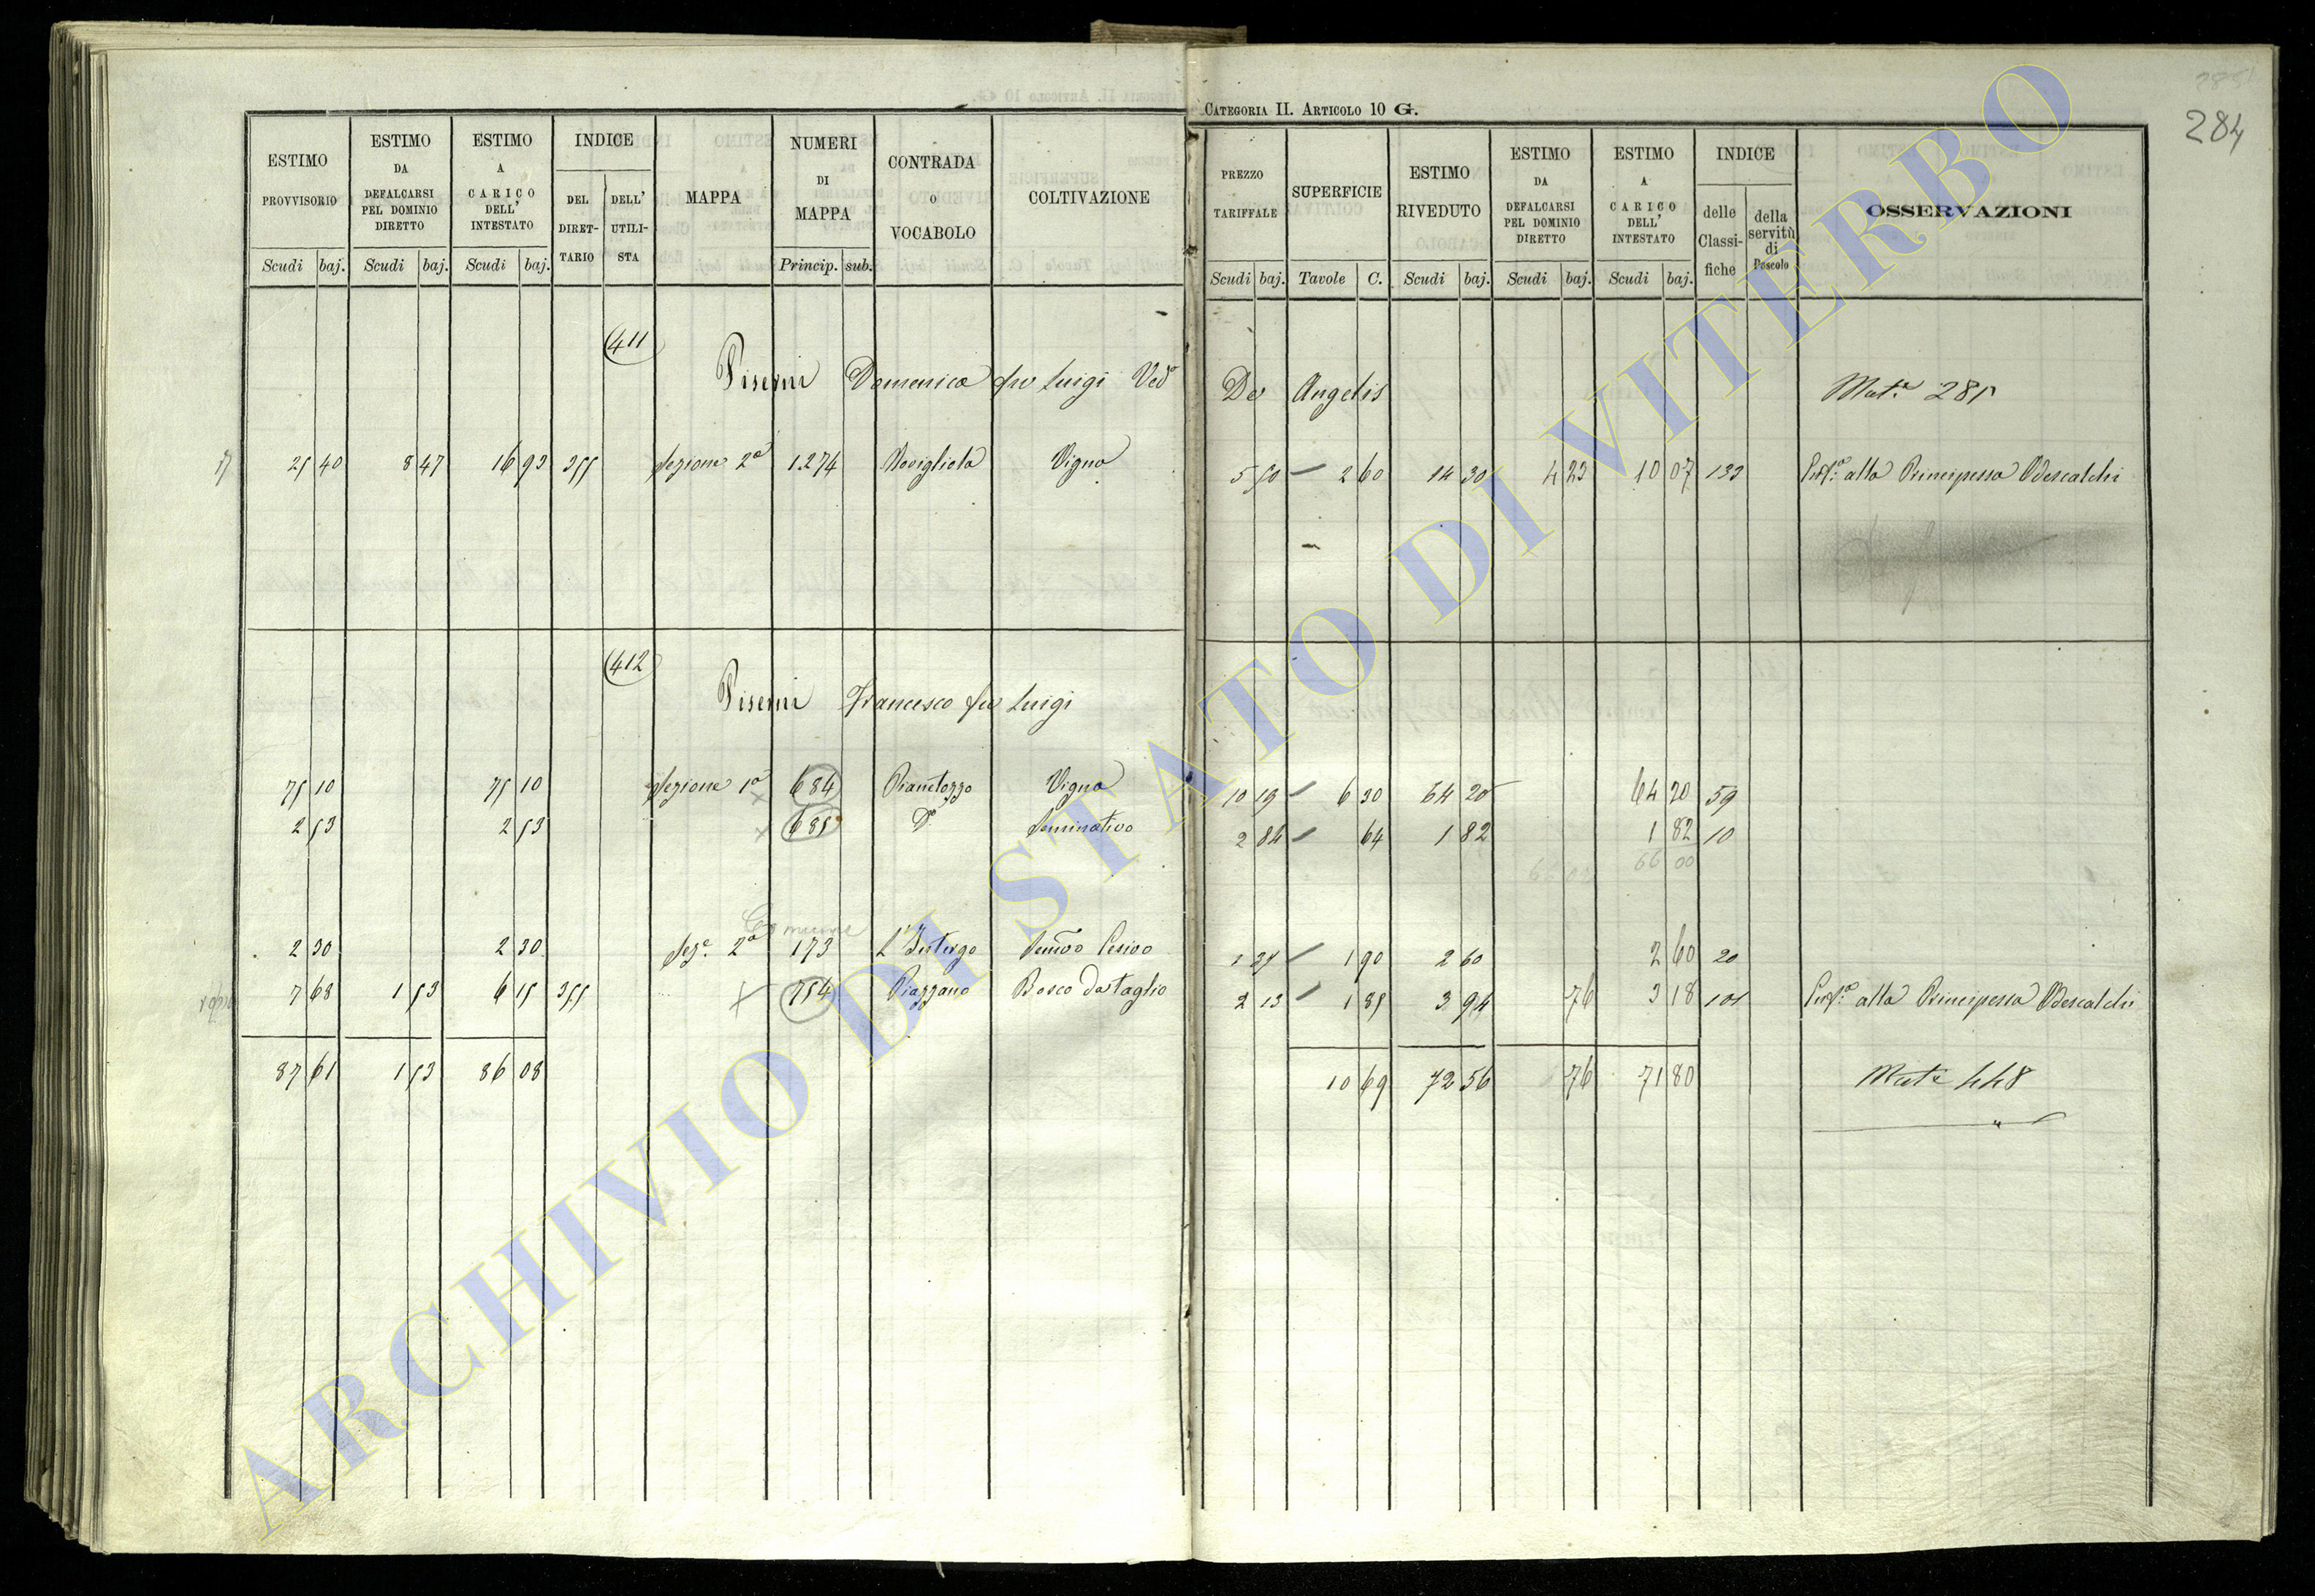 CATEGORIA II. ARTICOLO 10 G.
284
ESTIMO PROVVISORIO Scudi baj.
ESTIMO DA DEFALCARSI PEL DOMINIO DIRETTO Scudi baj.
ESTIMO A CARICO DELL' INTESTATO Scudi baj.
INDICE DEL DIRETTARIO DELL' UTILISTA
MAPPA
NUMERI DI MAPPA Princip. sub.
CONTRADA O VOCABOLO
COLTIVAZIONE
PREZZO TARIFFALE Scudi baj.
SUPERFICIE Tavole C.
ESTIMO RIVEDUTO Scudi baj.
ESTIMO DA DEFALCARSI PEL DOMINIO DIRETTO Scudi baj.
ESTIMO A CARICO DELL' INTESTATO Scudi baj.
INDICE delle Classifiche della servitù di Pascolo
OSSERVAZIONI
411
Piserni Domenica fu Luigi Ved.a De Angelis Mat.e 285
25 40 8 47 16 93 355 Sezione 2a 1274 Noviglieta Vigna 5 50 2 60 14 30 4 23 10 07 133 alla Principessa Odescalchi
412
Piserni Francesco fu Luigi
75 10 75 10 Sezione 1a 684 Pianetozzo Vigna 10 19 6 30 64 20 64 20 59
2 53 2 53 685 Do Seminativo 2 84 64 1 82 1 82 10
66 00
Comune
2 30 2 30 Sez.e 2a 173 1 90 2 60 2 60 20
7 68 1 53 6 15 355 754 Piazzano Bosco da taglio 2 13 1 85 3 94 76 3 18 101 alla Principessa Odescalchi
87 61 1 53 86 08 10 69 72 56 76 71 80 Mat.e 448
ARCHIVIO DI STATO DI VITERBO